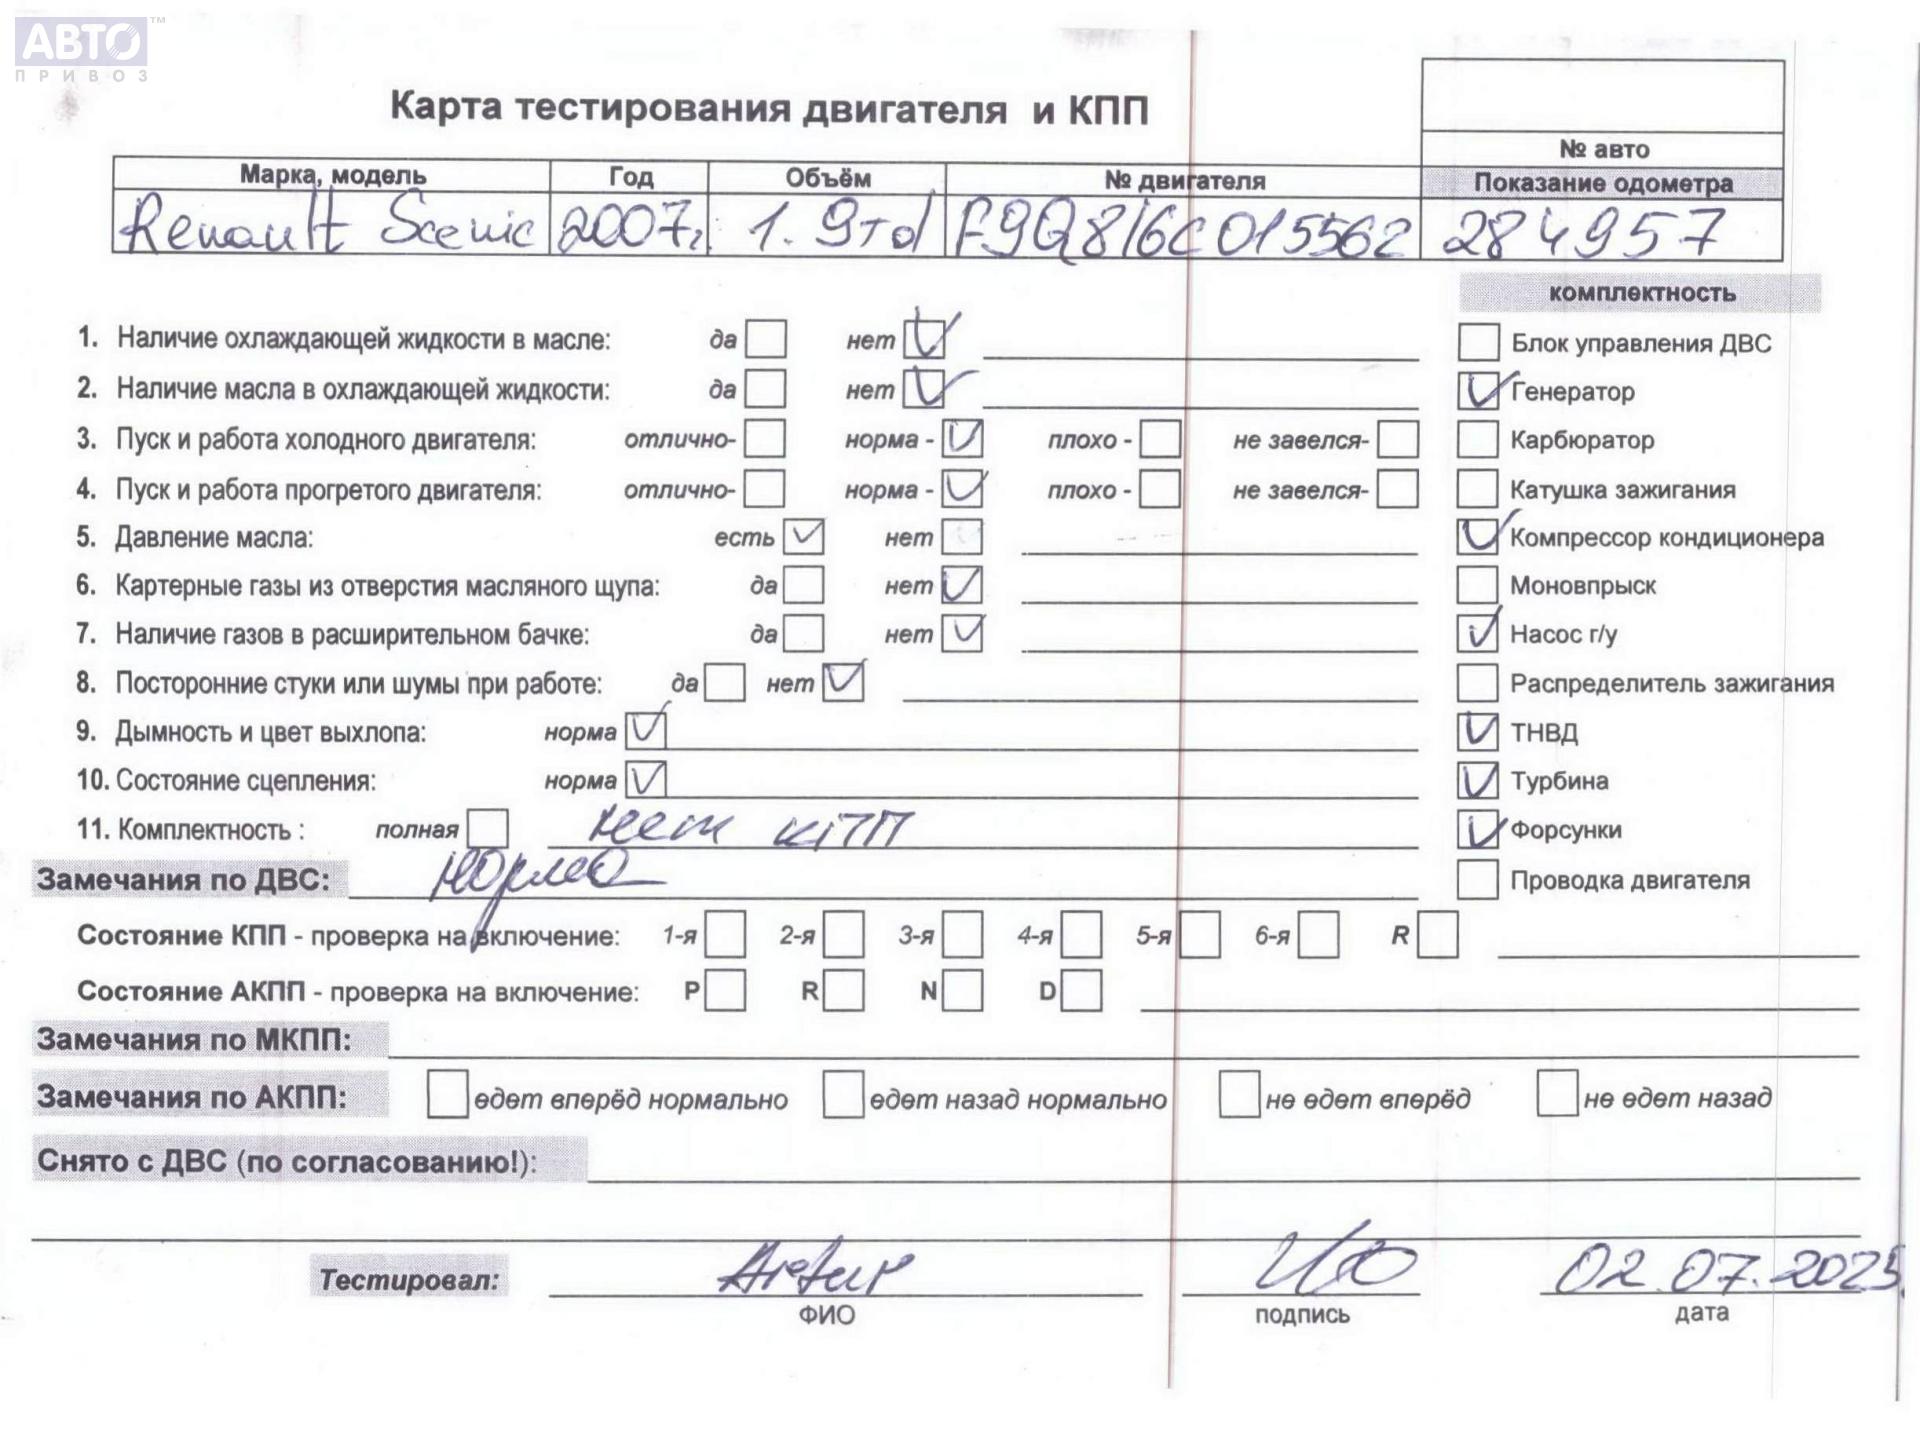 АВТО™
ПРИВОЗ
Карта тестирования двигателя и КПП
№ авто
Марка, модель Год Объём № двигателя Показание одометра
Renault Scenic 2007г. 1.9td F9Q816C015562 284957
комплектность
1. Наличие охлаждающей жидкости в масле: да нет
Блок управления ДВС
2. Наличие масла в охлаждающей жидкости: да нет
Генератор
3. Пуск и работа холодного двигателя: отлично- норма - плохо - не завелся-
Карбюратор
4. Пуск и работа прогретого двигателя: отлично- норма - плохо - не завелся-
Катушка зажигания
5. Давление масла: есть нет
Компрессор кондиционера
6. Картерные газы из отверстия масляного щупа: да нет
Моновпрыск
7. Наличие газов в расширительном бачке: да нет
Насос г/у
8. Посторонние стуки или шумы при работе: да нет
Распределитель зажигания
9. Дымность и цвет выхлопа: норма
ТНВД
10. Состояние сцепления: норма
Турбина
11. Комплектность : полная нет КПП
Форсунки
Замечания по ДВС: норма
Проводка двигателя
Состояние КПП - проверка на включение: 1-я 2-я 3-я 4-я 5-я 6-я R
Состояние АКПП - проверка на включение: P R N D
Замечания по МКПП:
Замечания по АКПП: едет вперёд нормально едет назад нормально не едет вперёд не едет назад
Снято с ДВС (по согласованию!):
Тестировал: Artur 02.07.2025
ФИО подпись дата